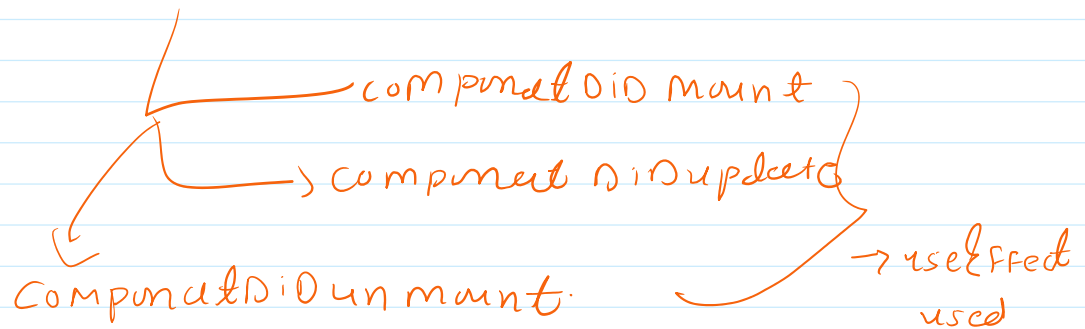 componatDiD mount
component DiDupdate
componatDiDunmount.
→ useEffect
used